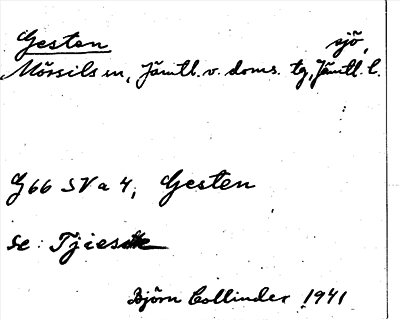 Gesten sjö,
Mörsils sn, Jämtl. v. doms. tg, Jämtl. l.
G66 SV a 4, Gesten
Se: Tjies
Björn Collinder 1941